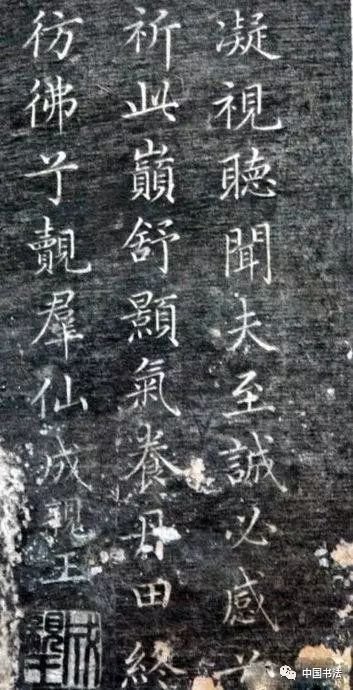 凝視聽聞夫至誠必感
祈此巔舒顥氣養丹田終
彷彿兮覿羣仙成親王
成親王
中国书法